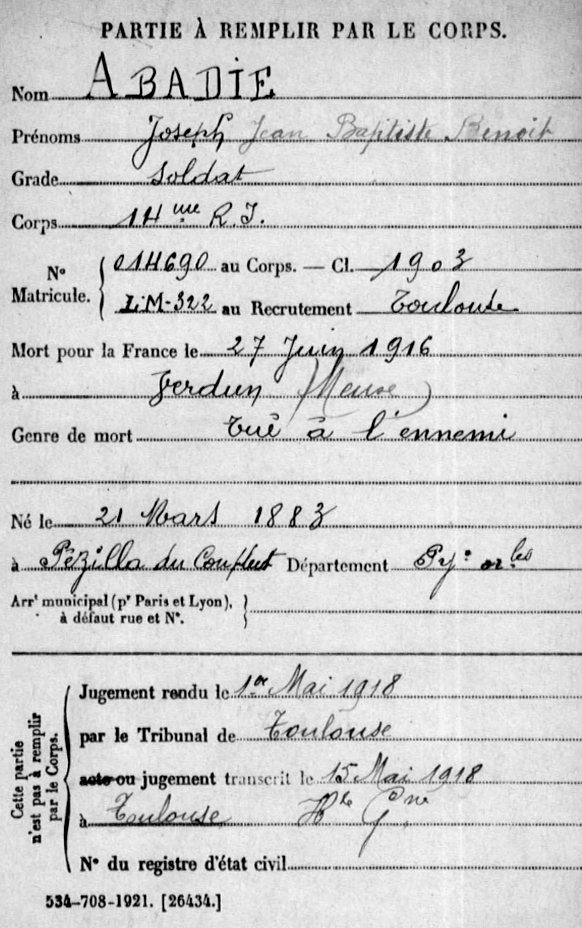 PARTIE À REMPLIR PAR LE CORPS.
Nom ABADIE
Prénoms Joseph Jean Baptiste Benoit
Grade Soldat
Corps 14me R.I.
No Matricule. { 014690 au Corps. — Cl. 1903
LM-322 au Recrutement Toulouse
Mort pour la France le 27 Juin 1916
à Verdun (Meuse)
Genre de mort Tué à l'ennemi
Né le 21 Mars 1883
à Pézilla du Conflent Département Py. or.les
Arrt municipal (pr Paris et Lyon), à défaut rue et No. }
Cette partie n'est pas à remplir par le Corps. {
Jugement rendu le 1er Mai 1918
par le Tribunal de Toulouse
acte ou jugement transcrit le 15 Mai 1918
à Toulouse Hte Gne
No du registre d'état civil
534-708-1921. [26434.]